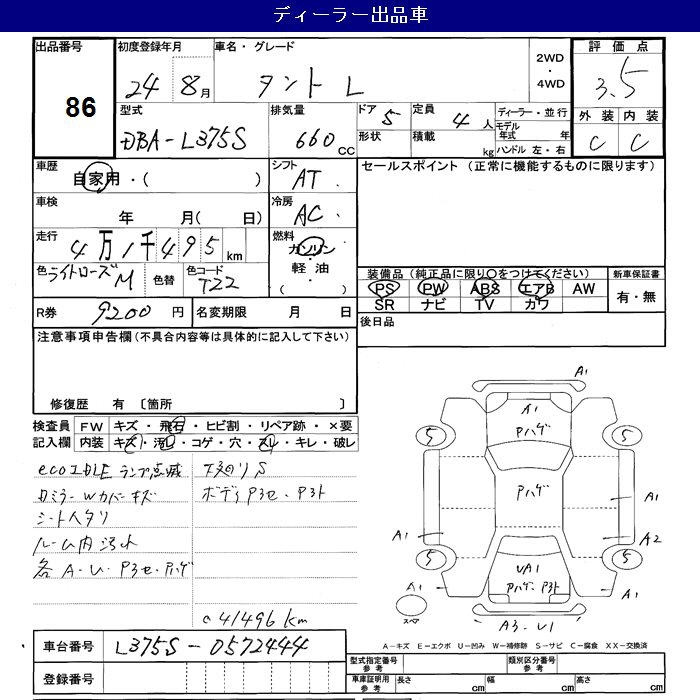 ディーラー出品車
出品番号 86
初度登録年月 24年 8月
車名・グレード タント L
2WD・4WD
評価点 3.5
外装 C 内装 C
型式 DBA-L375S
排気量 660 CC
ドア 5
形状
定員 4人
積載 kg
ディーラー・並行
モデル年式 年
ハンドル 左・右
車歴 自家用・( )
シフト AT
セールスポイント(正常に機能するものに限ります)
車検 年 月( 日)
冷房 AC
走行 4万1千495km
燃料 ガソリン・軽油・( )
色 ライトローズM 色替 色コード T22
装備品(純正品に限り○をつけてください)
新車保証書 有・無
PS PW ABS エアB AW
SR ナビ TV カワ
R券 9200円 名変期限 月 日
後日品
注意事項申告欄(不具合内容等は具体的に記入して下さい)
修復歴 有 〔箇所 〕
検査員記入欄 FW キズ・飛石・ヒビ割・リペア跡・×要
内装 キズ・汚レ・コゲ・穴・スレ・キレ・破レ
ecoIDLE ランプ点滅
ボディPヨセ・Pヨト
ロミラーWカバーキズ
シートヘタリ
ルーム内汚レ
各A・U・Pヨセ・Pハゲ
41496km
A1
A1
Pハゲ
5 5
Pハゲ
A1
A1 A2
5 5
UA1
Pハゲ・Pヨト
A1 A1
スペア
A3・U1
A-キズ E-エクボ U-凹み W-補修跡 S-サビ C-腐食 XX-交換済
車台番号 L375S-0572444
登録番号
型式指定番号 参考
類別区分番号 参考
車庫証明用 参考 長さ cm 幅 cm 高さ cm